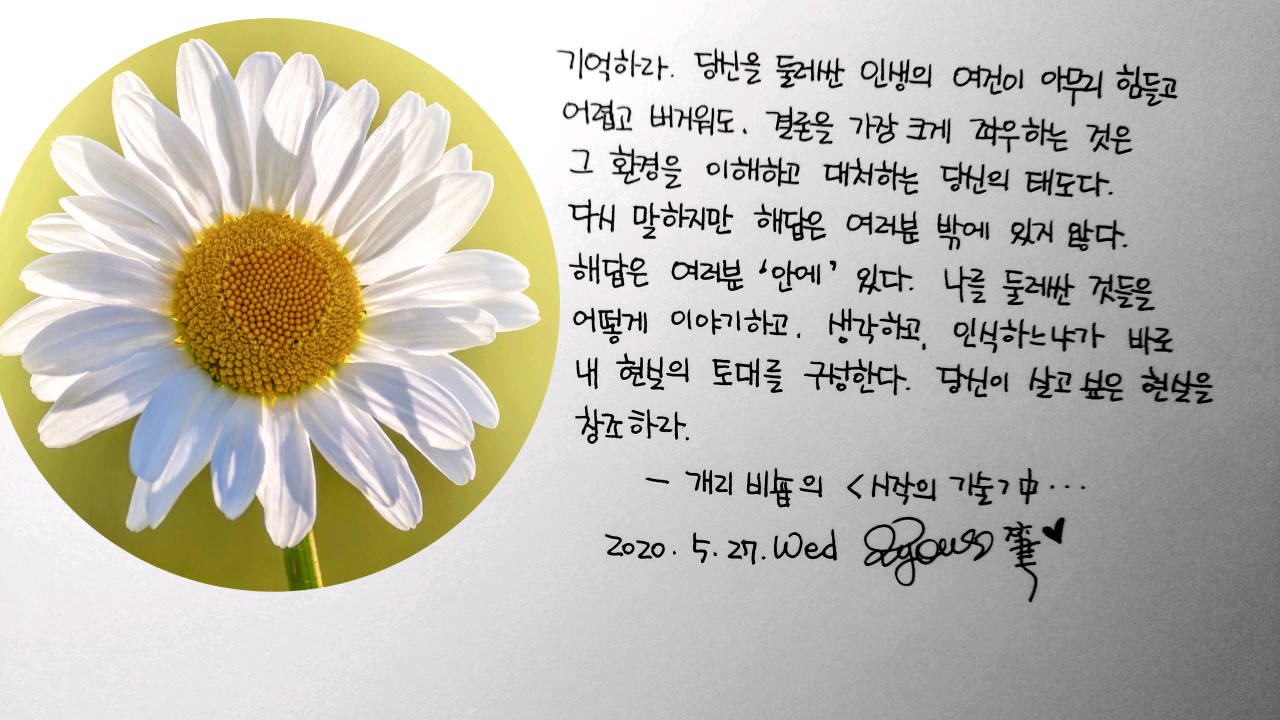 기억하라. 당신을 둘레싼 인생의 여건이 아무리 힘들고
어렵고 버거워도. 결론을 가장 크게 좌우하는 것은
그 환경을 이해하고 대처하는 당신의 태도다.
다시 말하지만 해답은 여러분 밖에 있지 않다.
해답은 여러분 ‘안에’ 있다. 나를 둘레싼 것들을
어떻게 이야기하고. 생각하고, 인식하느냐가 바로
내 현실의 토대를 구성한다. 당신이 살고 싶은 현실을
창조하라.
– 개리 비숍의 <시작의 기술> 中...
2020. 5. 27. Wed